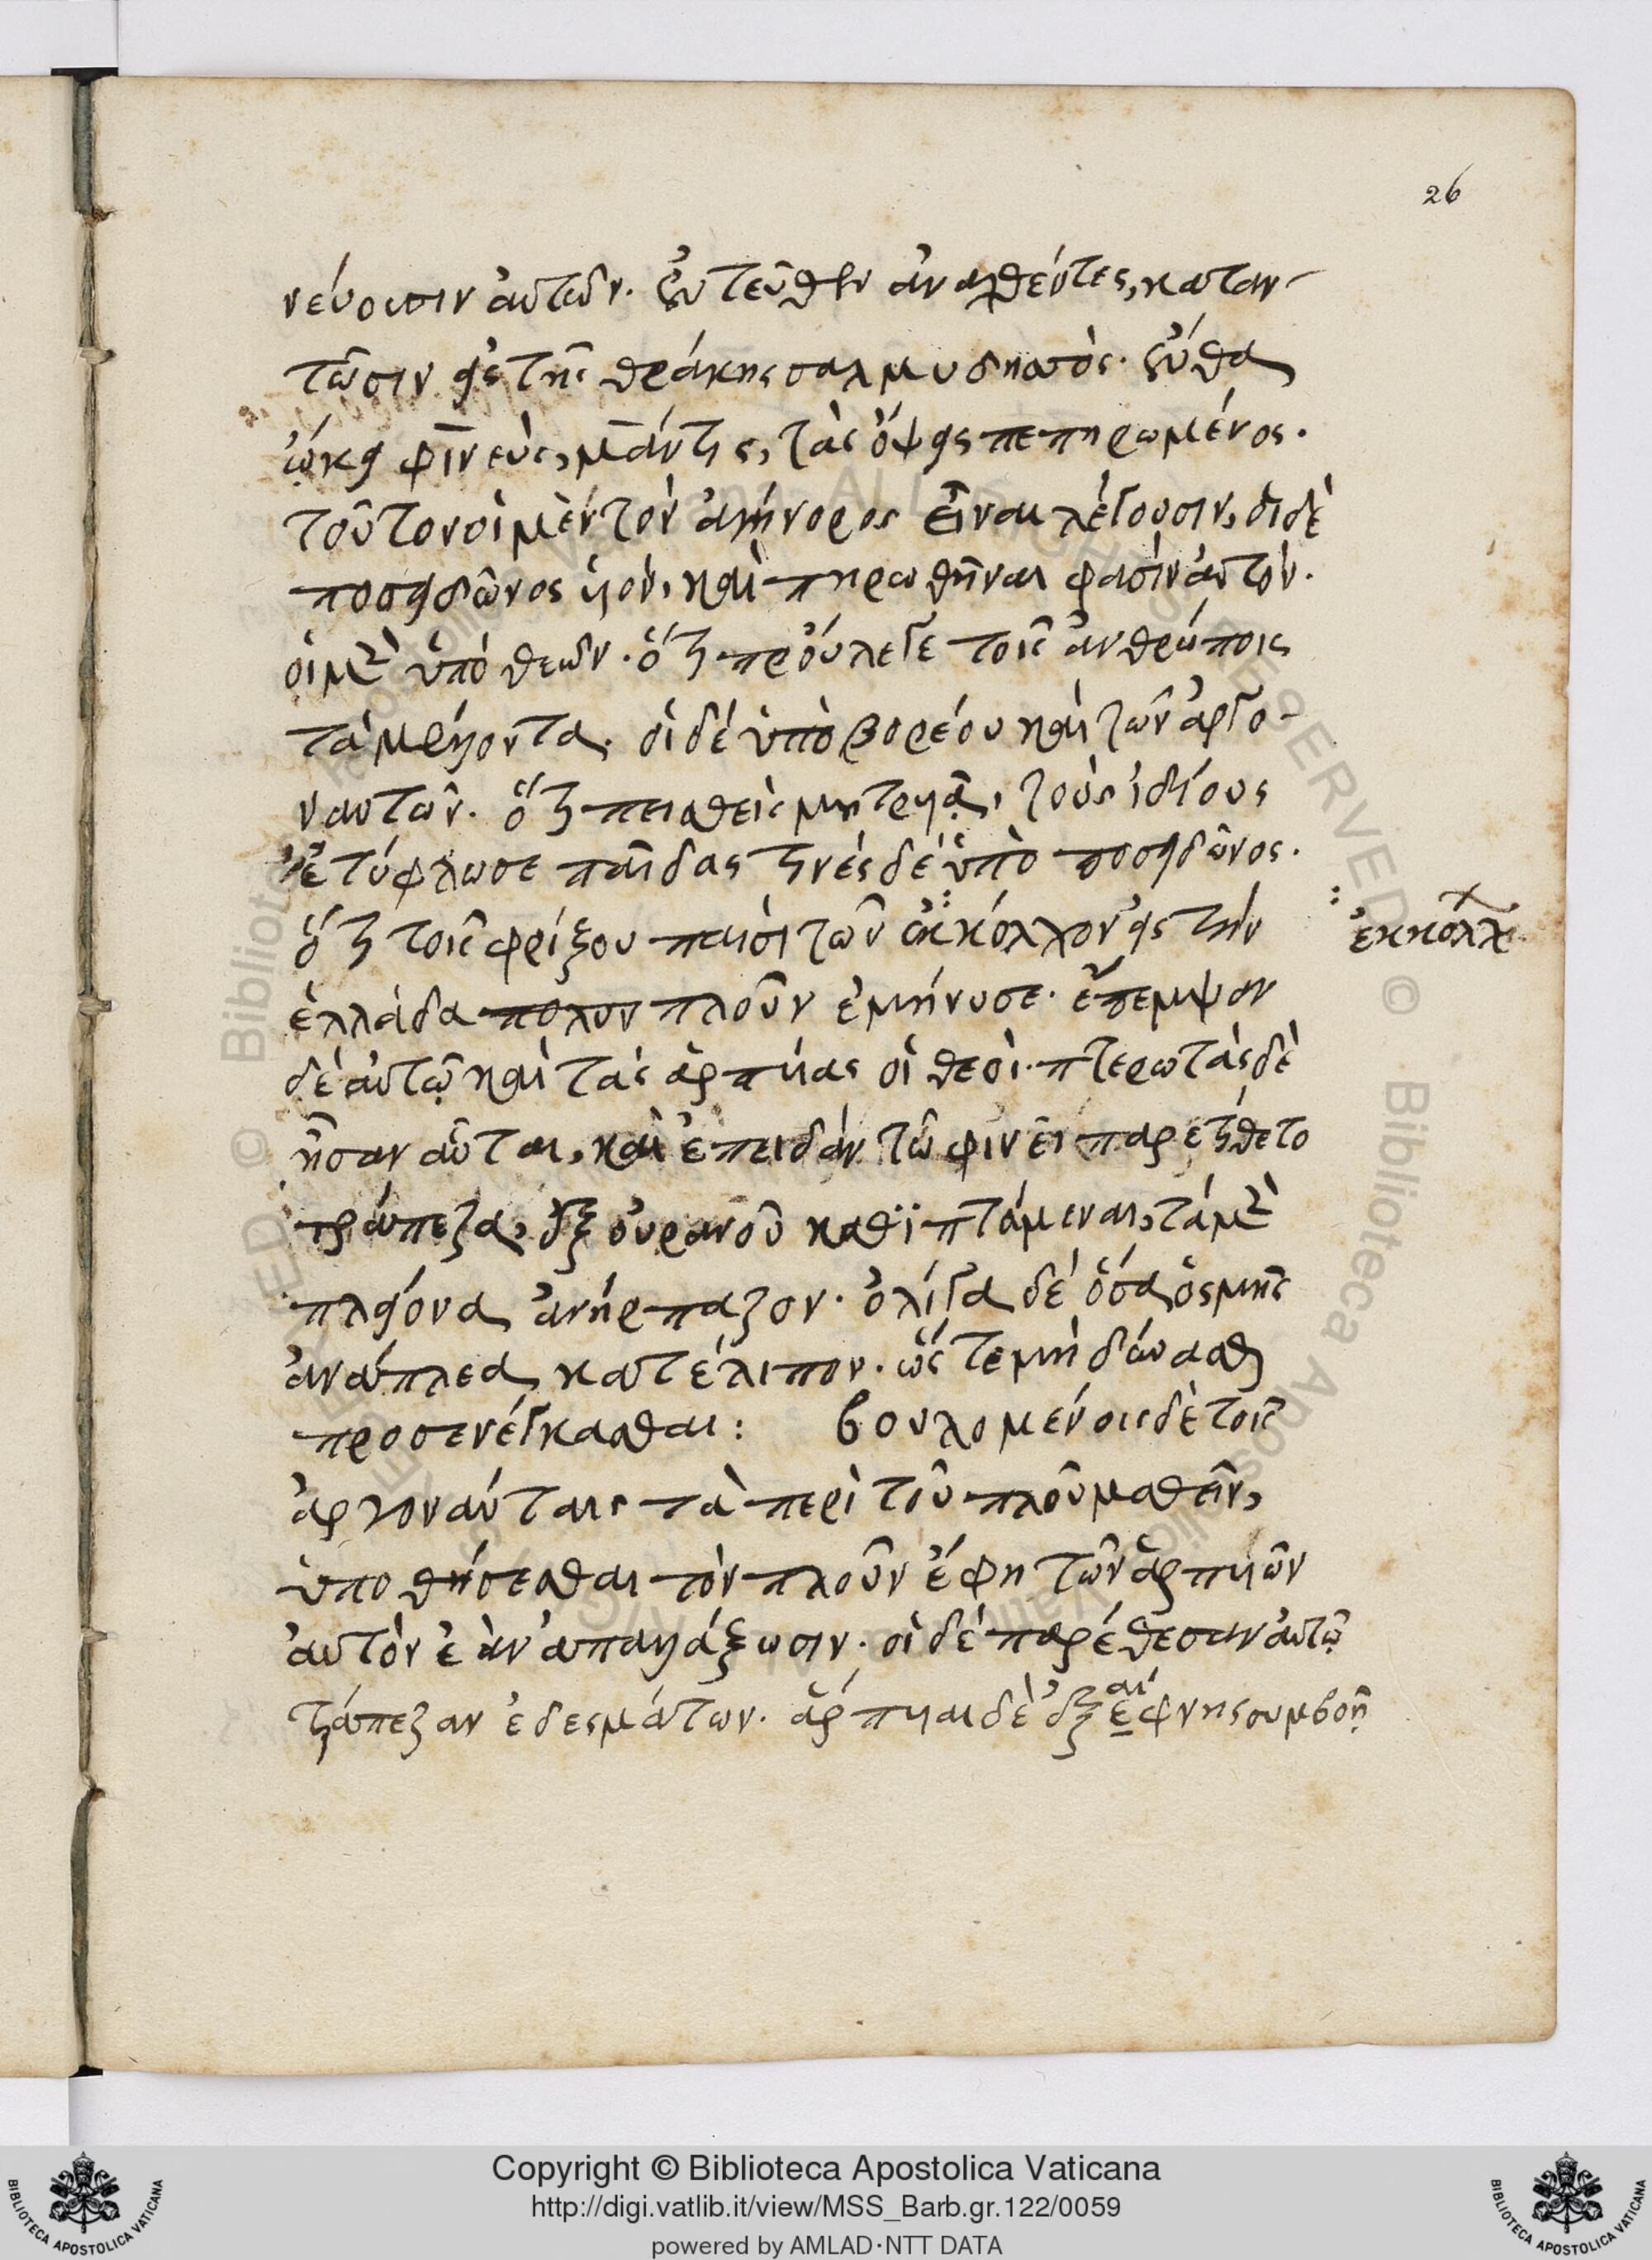 26
νεύουσιν αὐτῶν. ἐντεῦθεν ἀναχθέντες, καταν-
τῶσιν εἰς τῆς θράκης σαλμυδησσὸς. ἔνθα
ᾤκει φινεὺς, μάντις, τὰς ὄψεις πεπηρωμένος.
τοῦτον οἱ μὲν τὸν ἀγήνορος εἶναι λέγουσιν, οἱ δὲ
ποσειδῶνος υἱὸν, καὶ πηρωθῆναι φασὶν αὐτὸν.
οἱ μὲν ὑπὸ θεῶν. ὅτι προύλεγε τοῖς ἀνθρώποις
τὰ μέλλοντα. οἱ δὲ ὑπὸ βορέου καὶ τῶν ἀργο-
ναυτῶν. ὅτι πεισθεὶς μητρυιᾷ, τοὺς ἰδίους
ἐτύφλωσε παῖδας τινὲς δὲ ὑπὸ ποσειδῶνος.
ὅτι τοῖς φρίξου παισὶ τῶν ἐκ κόλχον εἰς τὴν
ἐκκόλχ
ἑλλάδα πολυν πλοῦν ἐμήνυσε. ἔπεμψαν
δὲ αὐτῷ καὶ τὰς ἁρπυίας οἱ θεοὶ. πτερωτὰς δὲ
ἦσαν αὗται, καὶ ἐπειδὰν τῶ φινεῖ παρετίθετο
τράπεζα, ἐξ οὐρανοῦ καθϊπτάμεναι, τὰ μὲν
πλείονα ἀνήρπαζον. ὀλίγα δὲ ὅσα ὀσμῆς
ἀνάπλεα κατέλιπον. ὥς τε μὴ δύνασθαι
προσενέγκασθαι: βουλομένοις δὲ τοῖς
ἀργοναύταις τὰ περὶ τοῦ πλοῦ μαθεῖν,
ὑποθήσεσθαι τὸν πλοῦν ἔφη τῶν ἁρπυιῶν
αὐτὸν ἐὰν ἀπαλλάξωσιν. οἱ δὲ παρέθεσαν αὐτῷ
τράπεζαν ἐδεσμάτων. ἅρπυιαι δὲ ἐξεαίφνης σὺμ βοῇ
Copyright © Biblioteca Apostolica Vaticana
http://digi.vatlib.it/view/MSS_Barb.gr.122/0059
powered by AMLAD·NTT DATA
BIBLIOTECA APOSTOLICA VATICANA
BIBLIOTECA APOSTOLICA VATICANA